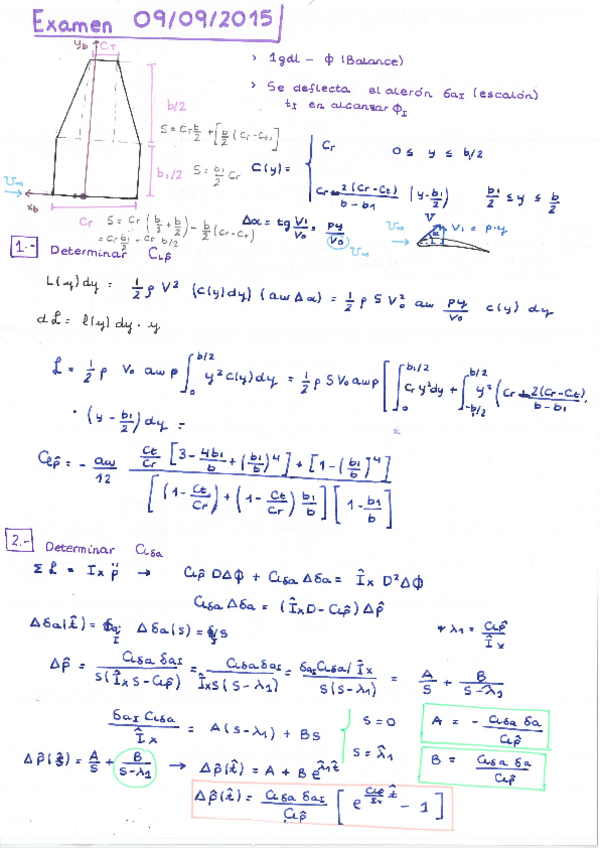 Examen 09/09/2015
y_b
C_T
b/2
b_1/2
x_b
C_r
U_∞
> 1gdl - ϕ (Balance)
> Se deflecta el alerón δa_I (escalón)
t_I en alcanzar ϕ_I
S = C_r b/2 + [b/2 (C_r - C_t)]
S = b_1/2 C_r
S = C_r (b/2 + b/2) - b/2 (C_r - C_t)
= C_r b_1/2 + C_r b/2
C(y) = { C_r 0 ≤ y ≤ b_1/2
C_r - 2(C_r - C_t)/(b - b_1) (y - b_1/2) b_1/2 ≤ y ≤ b/2
Δα = tg V_1/V_0 = py/V_0
U_∞
V
α
V_1 = p·y
U_∞
1.- Determinar C_lp̂
L(y) dy = 1/2 ρ V² (c(y) dy) (a_w Δα) = 1/2 ρ S V_0² a_w py/V_0 c(y) dy
dL = l(y) dy · y
L = 1/2 ρ V_0 a_w p ∫_0^{b/2} y² c(y) dy = 1/2 ρ S V_0 a_w p [ ∫_0^{b_1/2} C_r y² dy + ∫_{-b_1/2}^{b/2} y² (C_r - 2(C_r - C_t)/(b - b_1) ·
· (y - b_1/2) dy =
C_lp̂ = - a_w/12 (C_t/C_r [3 - 4b_1/b + (b_1/b)^4] + [1 - (b_1/b)^4]) / ([(1 - C_t/C_r) + (1 - C_t/C_r) b_1/b] [1 - b_1/b])
2.- Determinar C_lδa
Σ L = I_x p̈ → C_lp̂ DΔϕ + C_lδa Δδa = Î_x D²Δϕ
C_lδa Δδa = (Î_x D - C_lp̂) Δp̂
Δδa(t̂) = δa_I Δδa(s) = δ/s
* λ_1 = C_lp̂/Î_x
Δp̂ = C_lδa δa_I/(s(Î_x s - C_lp̂)) = C_lδa δa_I/(Î_x s(s - λ_1)) = (δa_I C_lδa/Î_x)/(s(s - λ_1)) = A/s + B/(s - λ_1)
δa_I C_lδa/Î_x = A(s - λ_1) + B s { s = 0 A = - C_lδa δa/C_lp̂
s = λ̂_1 B = C_lδa δa/C_lp̂
Δp̂(ŝ) = A/s + B/(s - λ_1) → Δp̂(t̂) = A + B e^{λ̂_1 t̂}
Δp̂(t̂) = C_lδa δa_I/C_lp̂ [ e^{C_lp̂/I_x t̂} - 1 ]